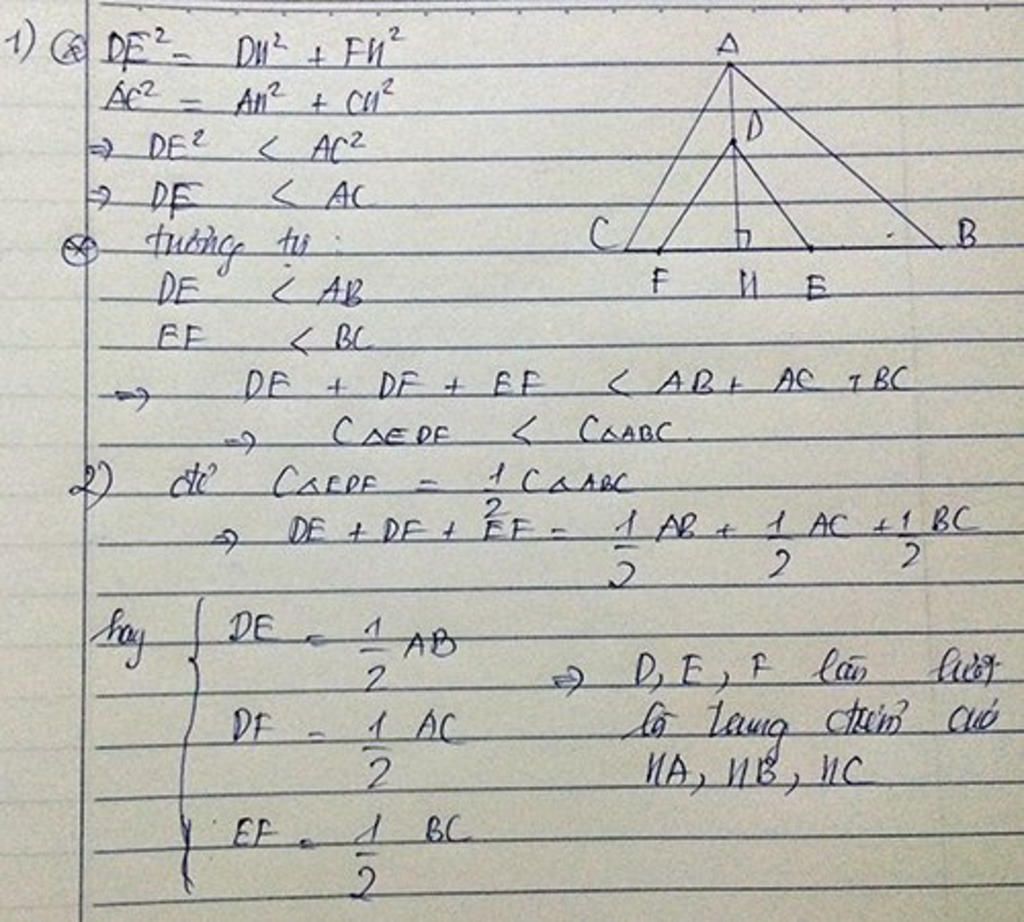 1) * DF² = DH² + FH²
AC² = AH² + CH²
⇒ DF² < AC²
⇒ DF < AC
* tương tự :
DE < AB
EF < BC
⇒ DE + DF + EF < AB + AC + BC
⇒ C△EDF < C△ABC
2) để C△EDF = 1/2 C△ABC
⇒ DE + DF + EF = 1/2 AB + 1/2 AC + 1/2 BC
hay { DE = 1/2 AB
DF = 1/2 AC
EF = 1/2 BC
⇒ D, E, F lần lượt
là trung điểm của
HA, HB, HC
A
D
C B
F H E